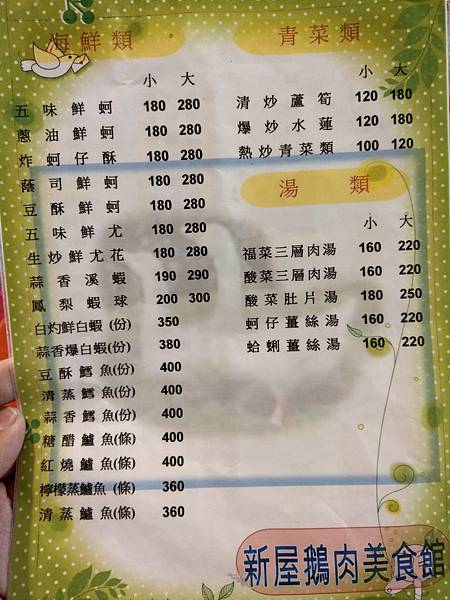 海鮮類
小 大
五味鮮蚵 180 280
蔥油鮮蚵 180 280
炸蚵仔酥 180 280
蔭司鮮蚵 180 280
豆酥鮮蚵 180 280
五味鮮尤 180 280
生炒鮮尤花 180 280
蒜香溪蝦 190 290
鳳梨蝦球 200 300
白灼鮮白蝦(份) 350
蒜香爆白蝦(份) 380
豆酥鱈魚(份) 400
清蒸鱈魚(份) 400
蒜香鱈魚(份) 400
糖醋鱸魚(條) 400
紅燒鱸魚(條) 400
檸檬蒸鱸魚(條) 360
清蒸鱸魚(條) 360
青菜類
小 大
清炒蘆筍 120 180
爆炒水蓮 120 180
熱炒青菜類 100 120
湯類
小 大
福菜三層肉湯 160 220
酸菜三層肉湯 160 220
酸菜肚片湯 180 250
蚵仔薑絲湯 160 220
蛤蜊薑絲湯 160 220
新屋鵝肉美食館